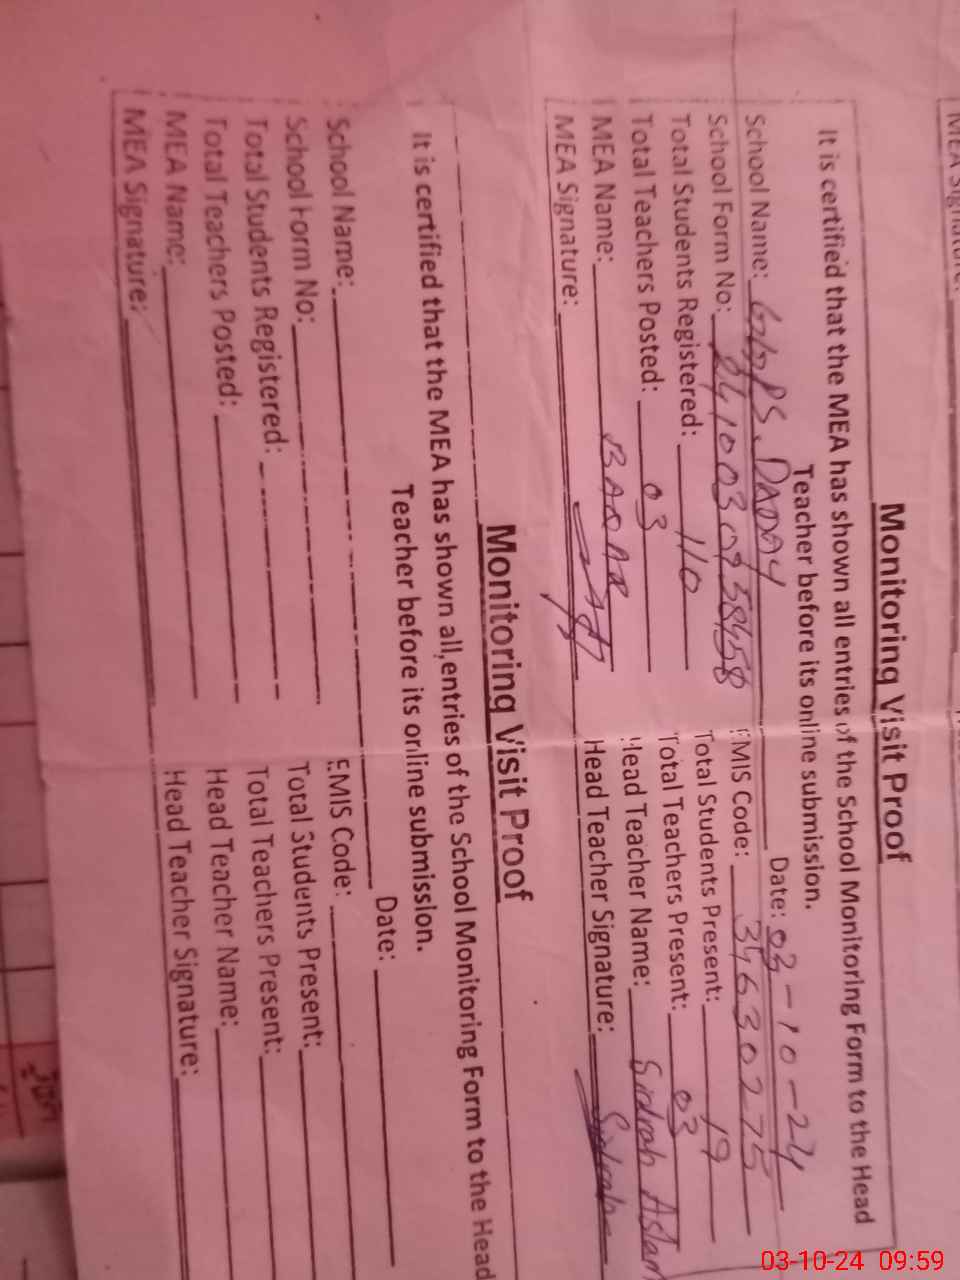 MEA Signature:
Monitoring Visit Proof
It is certified that the MEA has shown all entries of the School Monitoring Form to the Head
Teacher before its online submission.
Date: 03-10-24
School Name: GGPS. DADAY
EMIS Code: 34630275
School Form No:
Total Students Present: 19
Total Students Registered: 110
Total Teachers Present: 03
Total Teachers Posted: 03
Head Teacher Name: Sidrah Aslam
MEA Name: BABAR
Head Teacher Signature: Sidrah
MEA Signature:
Monitoring Visit Proof
It is certified that the MEA has shown all entries of the School Monitoring Form to the Head
Teacher before its online submission.
Date:
School Name:
EMIS Code:
School Form No:
Total Students Present:
Total Students Registered:
Total Teachers Present:
Total Teachers Posted:
Head Teacher Name:
MEA Name:
Head Teacher Signature:
MEA Signature:
03-10-24 09:59